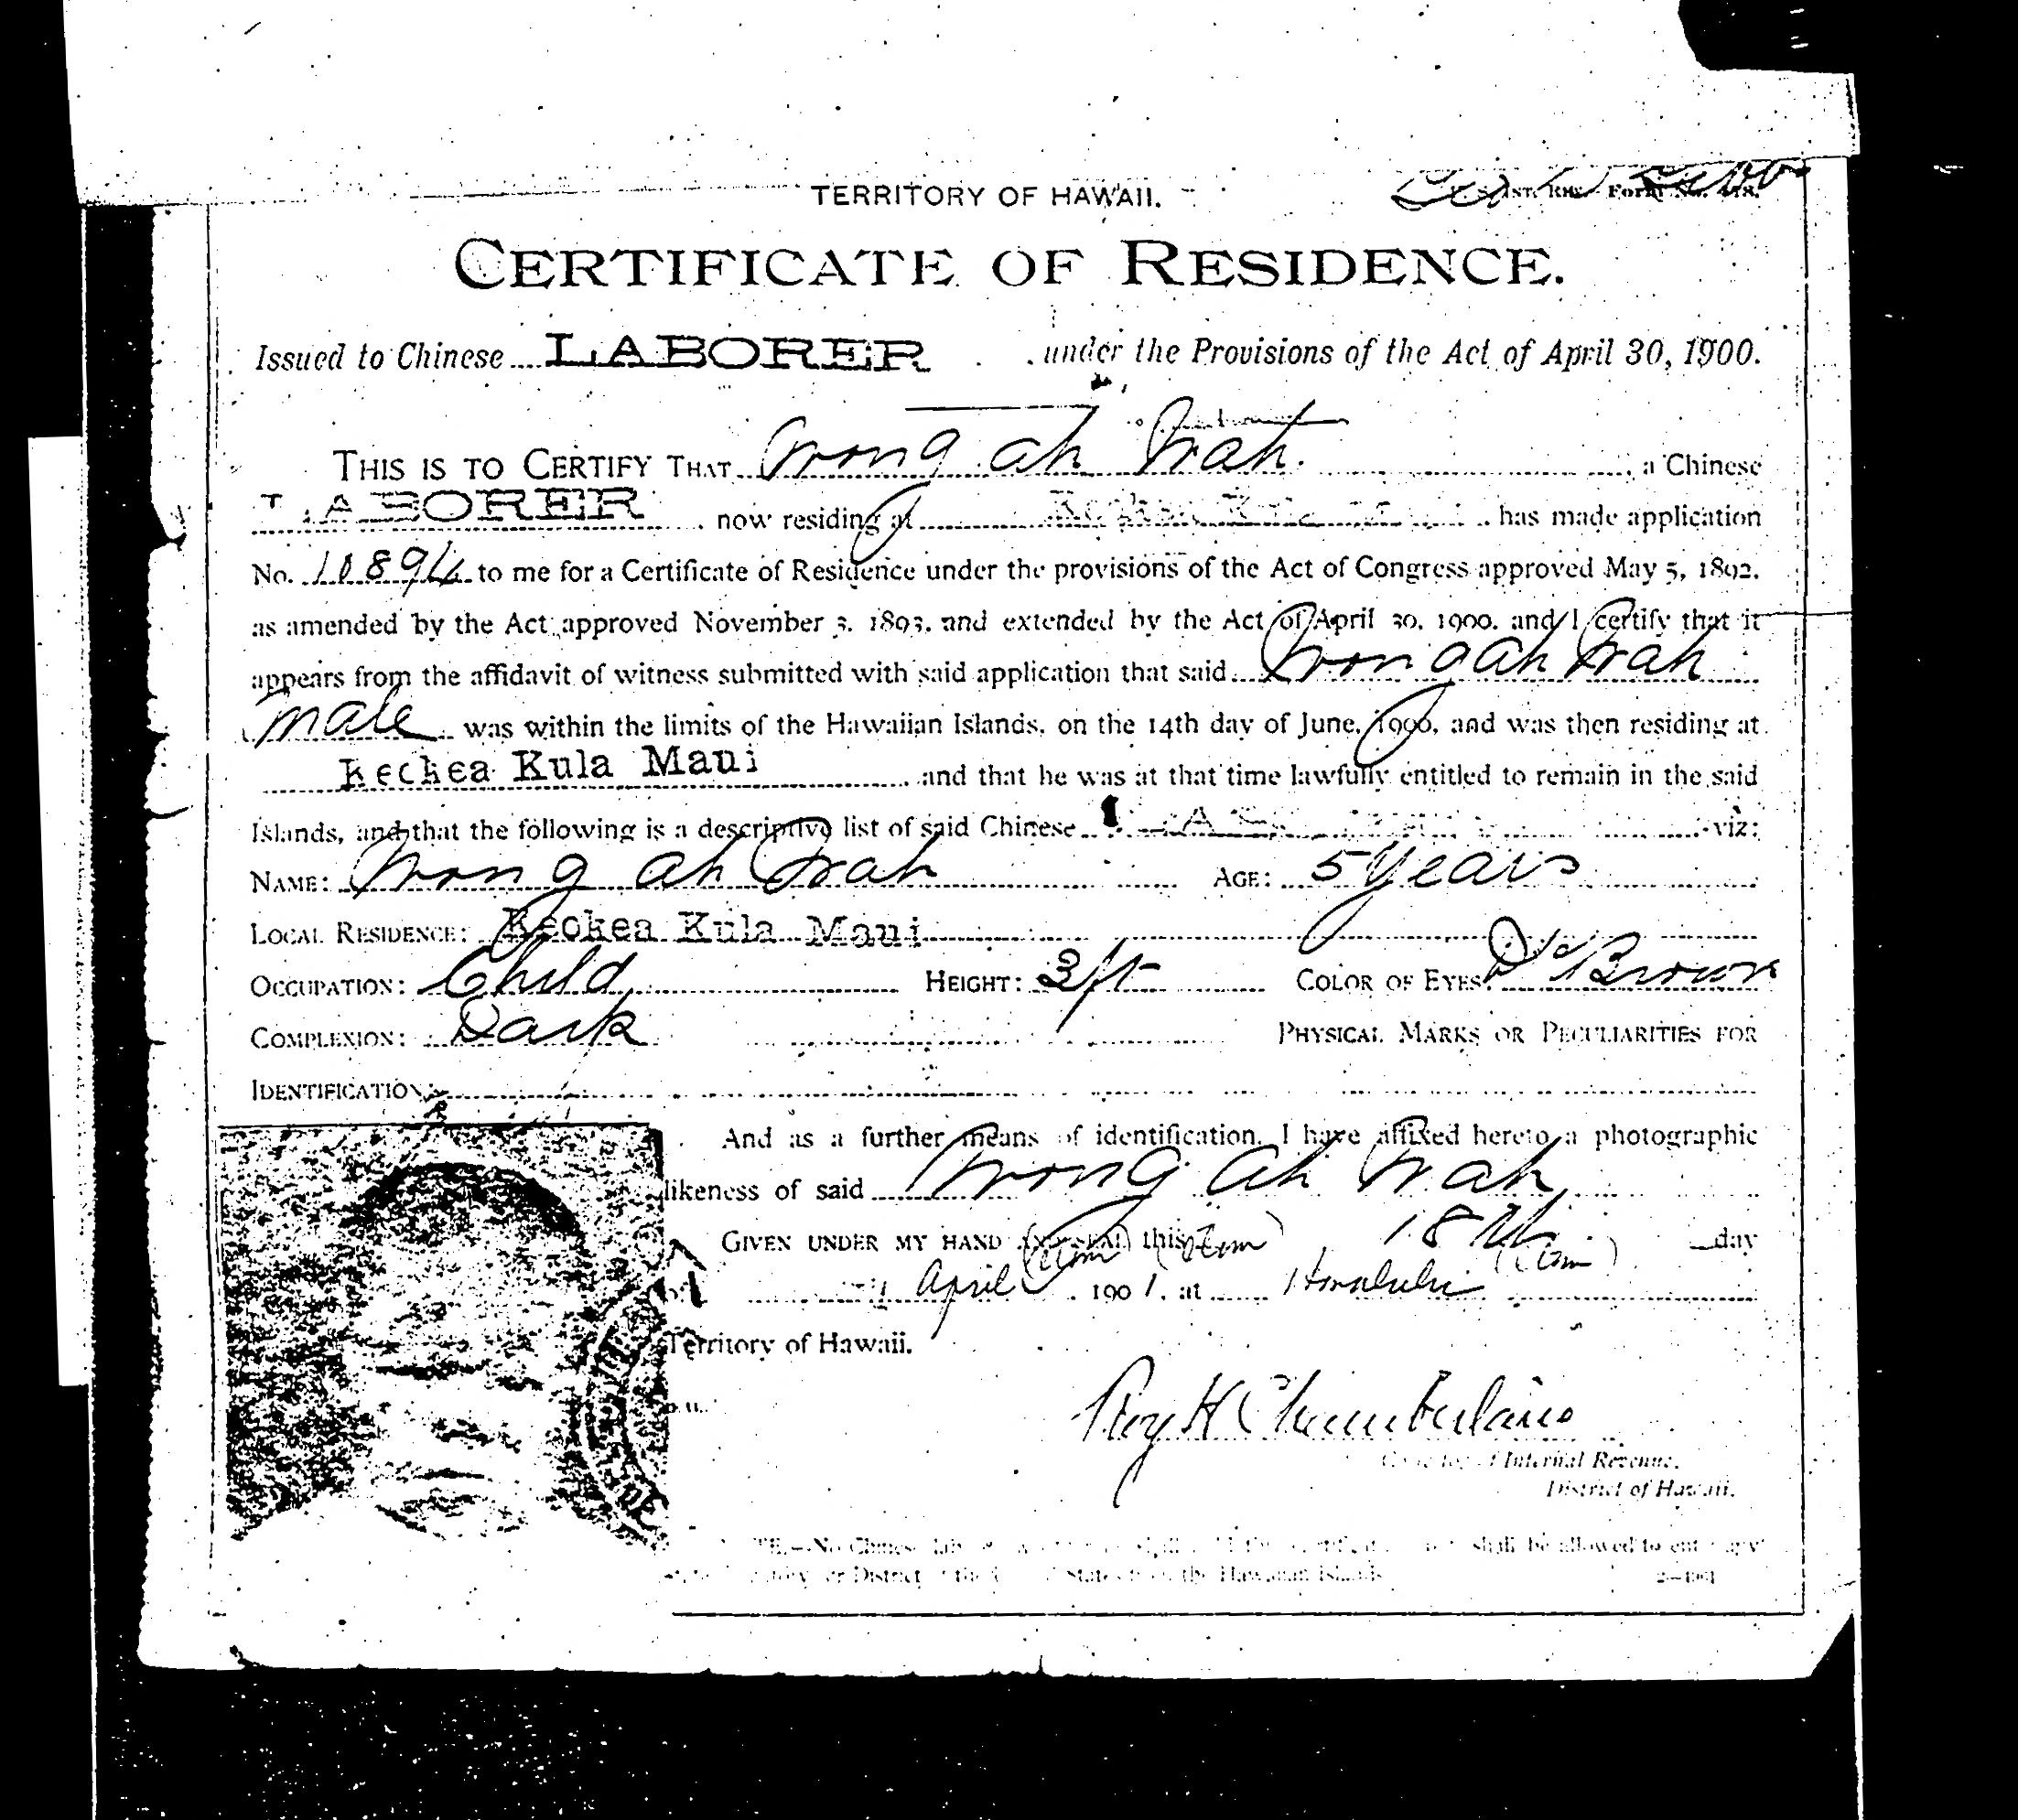 TERRITORY OF HAWAII.
CERTIFICATE OF RESIDENCE.
Issued to Chinese LABORER under the Provisions of the Act of April 30, 1900.
THIS IS TO CERTIFY THAT Wong Ah Wah, a Chinese
LABORER now residing at Keokea Kula Maui has made application
No. 10894 to me for a Certificate of Residence under the provisions of the Act of Congress approved May 5, 1892,
as amended by the Act approved November 3, 1893, and extended by the Act of April 30, 1900, and I certify that it
appears from the affidavit of witness submitted with said application that said Wong Ah Wah
male was within the limits of the Hawaiian Islands, on the 14th day of June, 1900, and was then residing at
Keokea Kula Maui and that he was at that time lawfully entitled to remain in the said
Islands, and that the following is a descriptive list of said Chinese viz:
NAME: Wong Ah Wah AGE: 5 years
LOCAL RESIDENCE: Keokea Kula Maui
OCCUPATION: Child HEIGHT: 3 ft COLOR OF EYES: Brown
COMPLEXION: Dark PHYSICAL MARKS OR PECULIARITIES FOR
IDENTIFICATION:
And as a further means of identification, I have affixed hereto a photographic
likeness of said Wong Ah Wah
GIVEN UNDER MY HAND this 18th day
April 1901, at Honolulu
Territory of Hawaii.
Roy H Chamberlain
Internal Revenue,
District of Hawaii.
shall be allowed to
or District the Hawaiian Islands